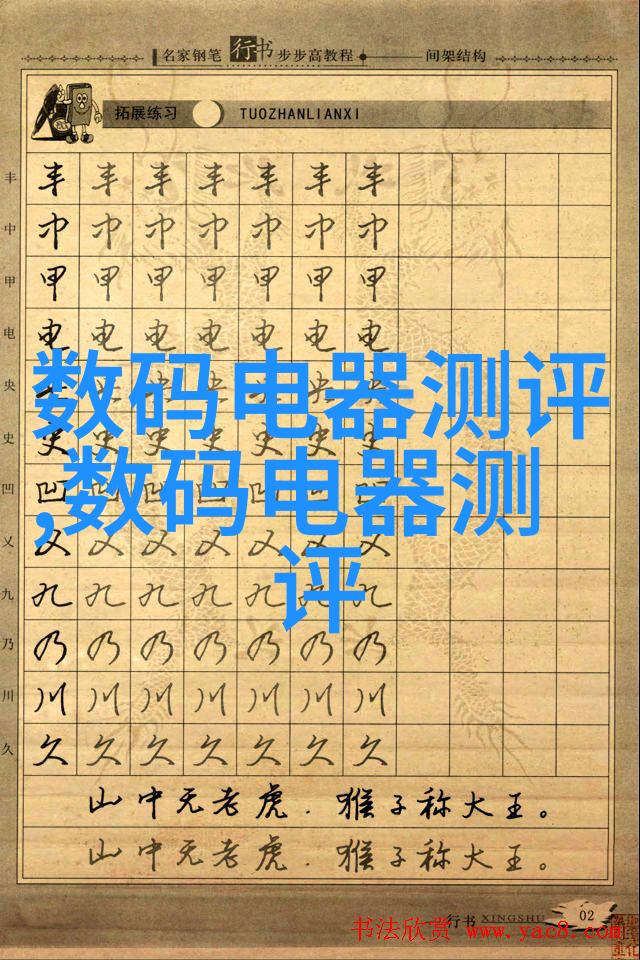 名家钢笔行书步步高教程 间架结构
拓展练习 TUOZHANLIANXI
丰 丰 丰 丰 丰 丰 丰 丰
中 中 中 中 中 中 中 中
甲 甲 甲 甲 甲 甲 甲 甲
电 电 电 电 电 电 电 电
数码电器测评
央 央 央 央 央 央 央 央
史 史 史 史 史 史 史 史
,数码电器测
凹 凹 凹 凹 凹 凹 凹 凹
乂 乂 乂 乂 乂 乂 乂 乂
评
九 九 九 九 九 九 九 九
乃 乃 乃 乃 乃 乃 乃 乃
川 川 川 川 川 川 川 川
久 久 久 久 久 久 久 久
山中无老虎.猴子称大王。
山中无老虎.猴子称大王。
行书 XINGSHU 02
书法欣赏 www.yac8.com